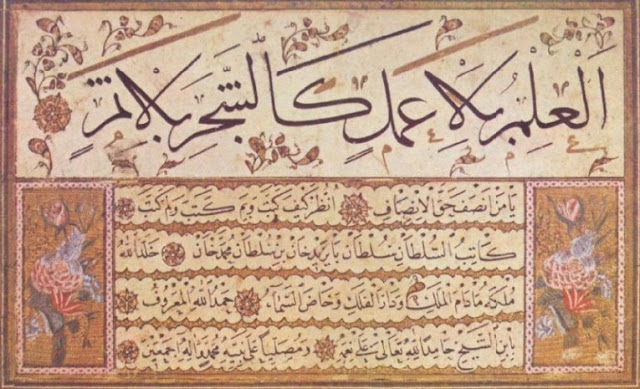 العلم بلا عمل كالشجر بلا ثمر
يا من انصف حق الانصاف انظر كيف كتبت وبم كتبت ولم كتبت
كاتب السلطان سلطان بايزيد خان بن سلطان محمد خان خلد الله
ملكه ما دام الملك ودار الفلك وخاض حمد الله المعروف
بابن الشيخ حامدا لله تعالى على نعمه ومصليا على نبيه محمد وآله اجمعين